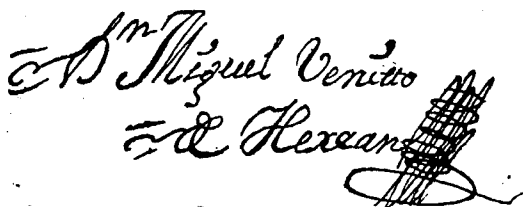 Dn Miguel Venitto
de Herran